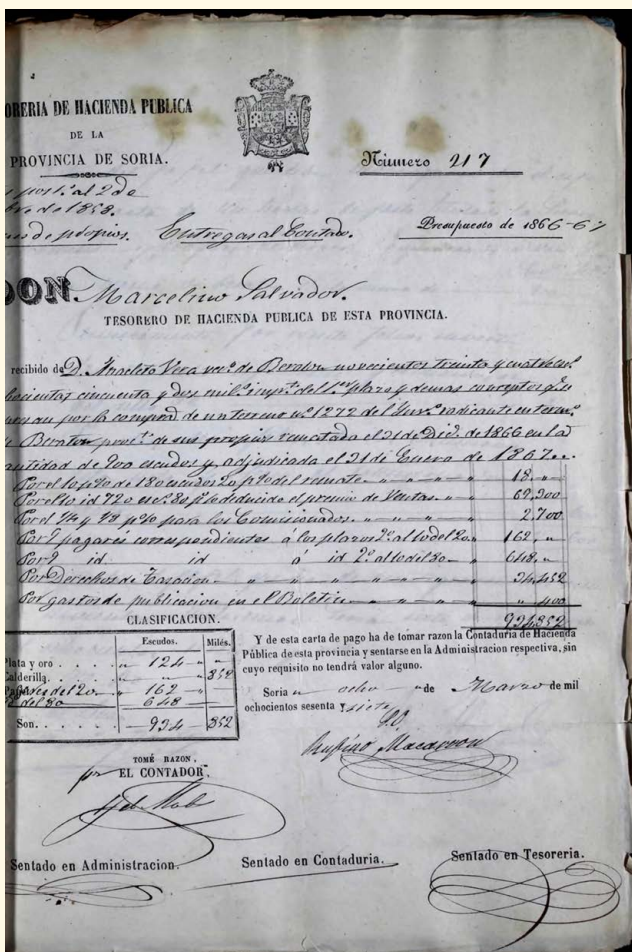 ORERIA DE HACIENDA PUBLICA
DE LA
PROVINCIA DE SORIA.
Número 217
post.s al 2 de
bre de 1858.
de propios. Entregas al Contado.
Presupuesto de 1866-67
DON Marcelino Salvador.
TESORERO DE HACIENDA PUBLICA DE ESTA PROVINCIA.
recibido de D. Anacleto Vera vec.º de Beraton novecientos treinta y cuatro esc.s
hocientas cincuenta y dos mil.s imp.te del 1.er plazo y demas conceptos q.e
por la compra de un terreno n.º 1272 del Inv.º radicante en term.º
Beraton proc.te de sus propios rematado el 21 de Dic.e de 1866 en la
antidad de 900 escudos y adjudicada el 31 de Enero de 1867..
Por el 10 p% de 180 escudos 20 p% del remate 18. "
Por el 10 id 720 esc.s 80 p% deducido el premio de Ventas 69,300
Por el 1/4 y 1/8 p% para los Comisionados 2,700
Por 9 pagarés correspondientes á los plazos 2.º al 10 del 20 162. "
Por 9 id id á id 2.º al 10 del 80 648. "
Por Derechos de Tasacion 34,452
Por gastos de publicacion en el Boletin " 400
934,852
CLASIFICACION.
Escudos. Milés.
Plata y oro . . . . " 124 " "
Calderilla. . . . . " " 852
Pagarés del 20 " 162 "
del 80 648
Son. . . . . 934 852
Y de esta carta de pago ha de tomar razon la Contaduría de Hacienda
Pública de esta provincia y sentarse en la Administracion respectiva, sin
cuyo requisito no tendrá valor alguno.
Soria " ocho " de Marzo de mil
ochocientos sesenta y siete
Rufino Macarron
TOMÉ RAZON.
por EL CONTADOR.
Sentado en Administracion.
Sentado en Contaduría.
Sentado en Tesorería.